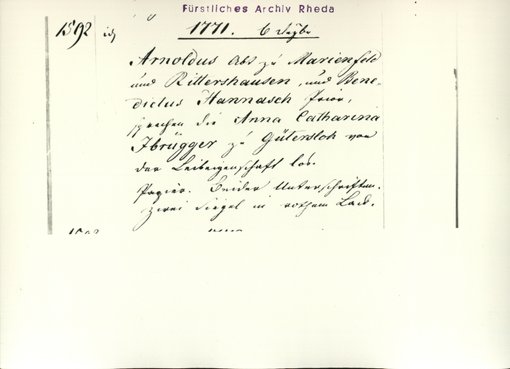 Fürstliches Archiv Rheda
1592 1771. 6 Septbr
Arnoldus Abt zu Marienfeld
und Rittershausen, und Bene-
dictus Hannasch Prior,
sprechen die Anna Catharina
Ibrügger zu Gütersloh von
der Leibeigenschaft los.
Papier. Beider Unterschriften.
Zwei Siegel in rothem Lack.